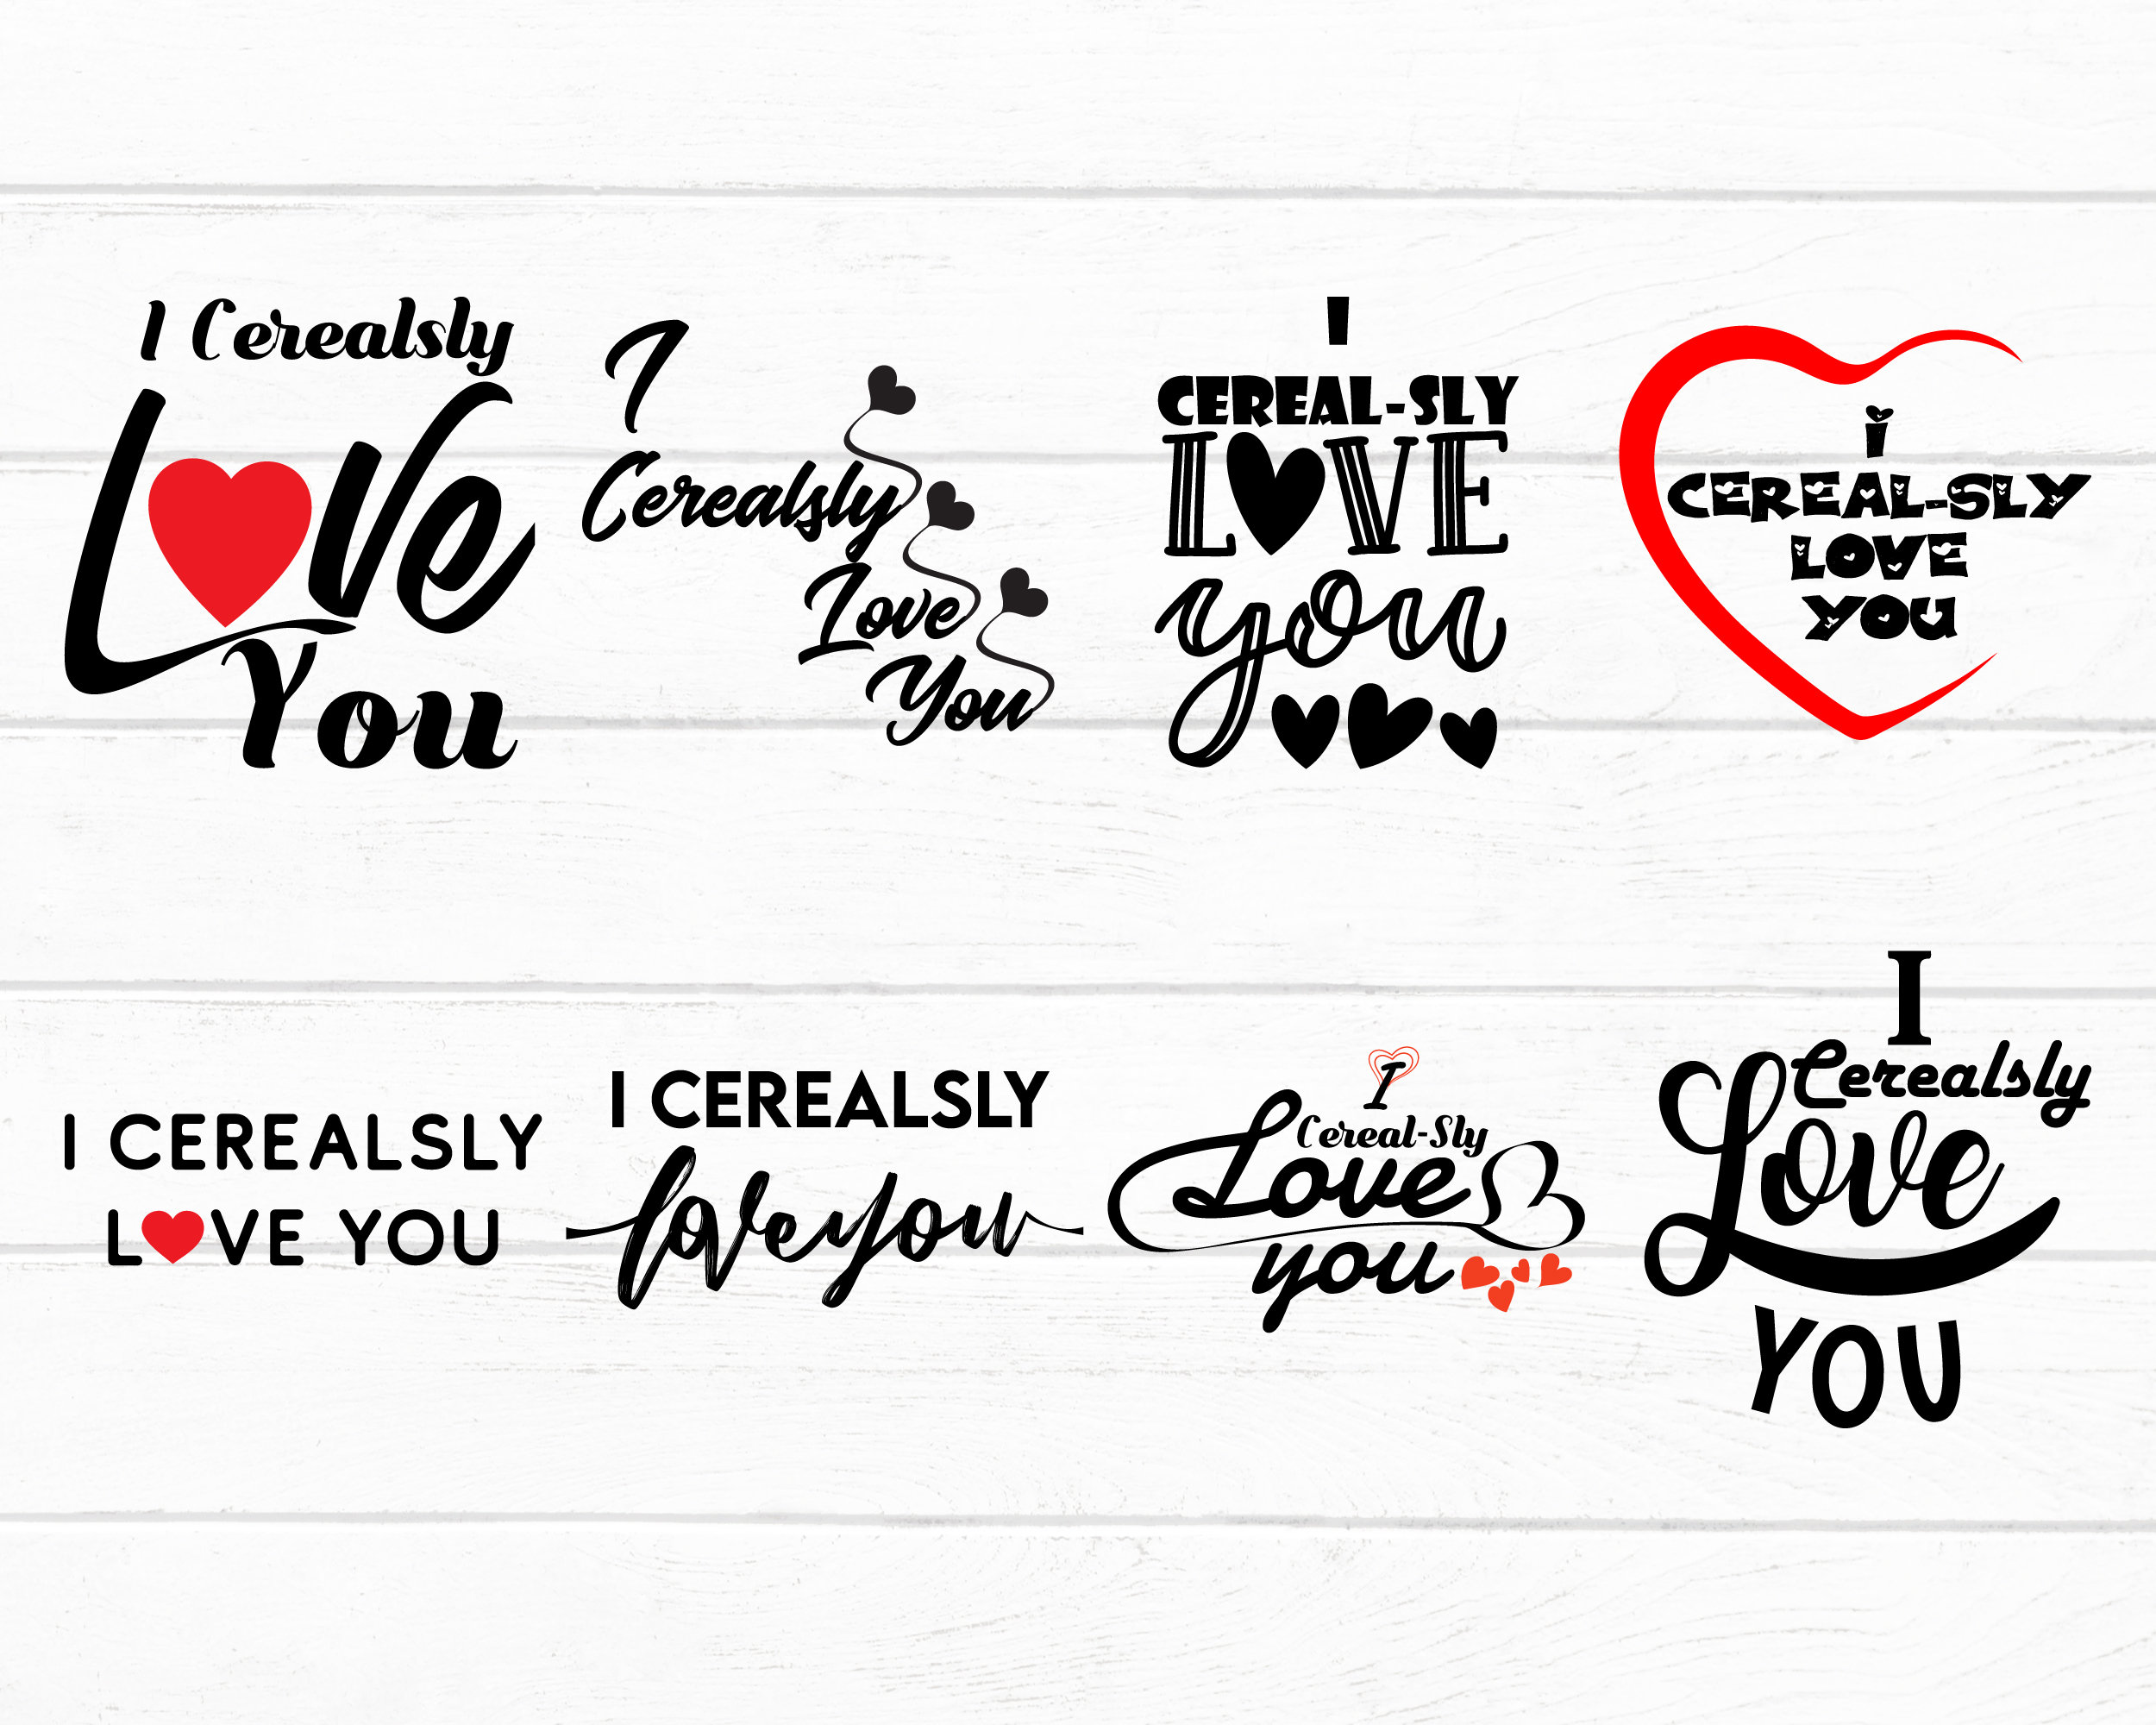 I Cerealsly
Love
You
I
Cerealsly
Love
You
I
CEREAL-SLY
LOVE
you
I
CEREAL-SLY
LOVE
YOU
I CEREALSLY
LOVE YOU
I CEREALSLY
love you
I
Cereal-Sly
Love
you
I
Cerealsly
Love
YOU